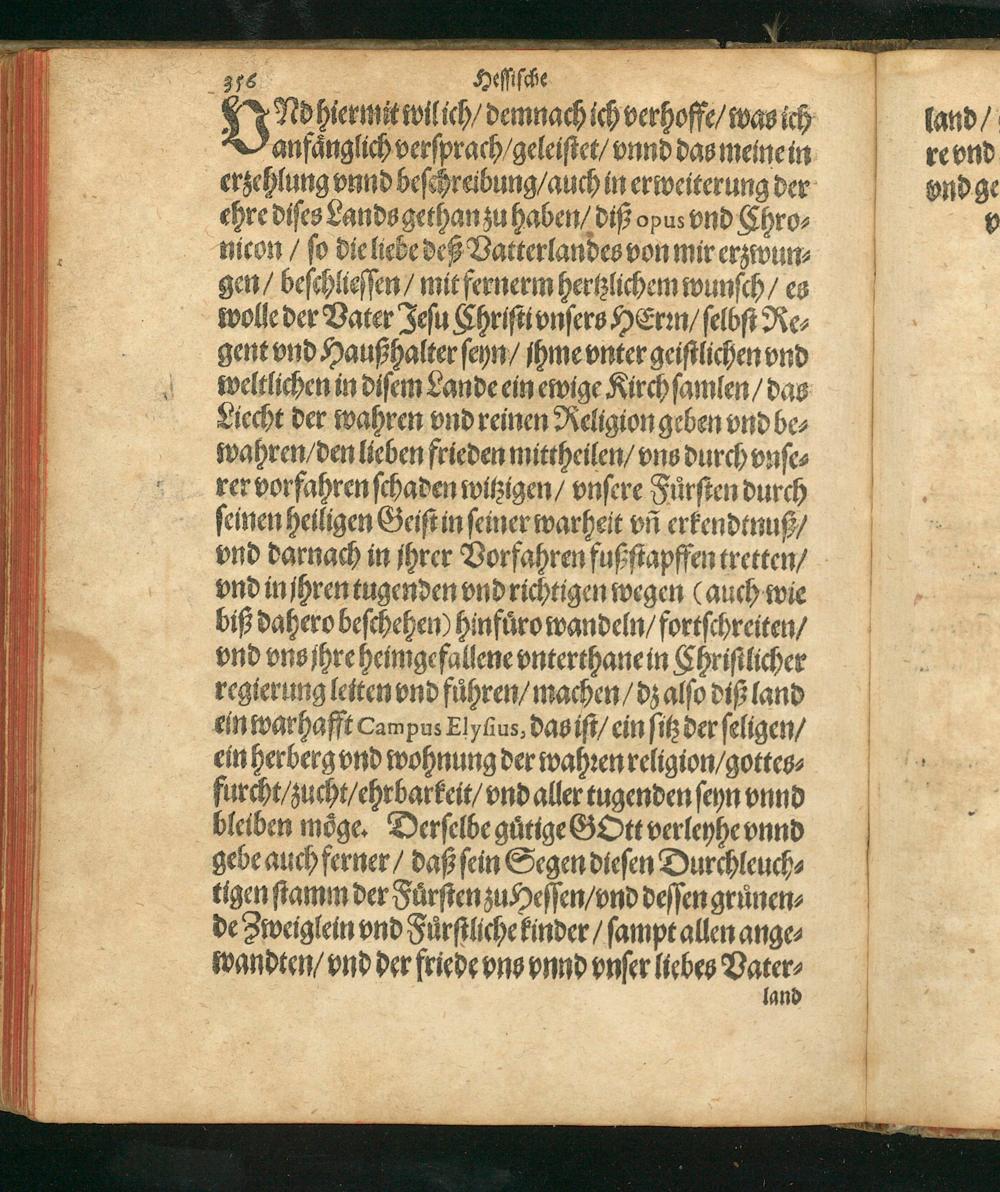 356 Hessische
VNd hiermit wil ich/ demnach ich verhoffe/ was ich
anfänglich versprach/ geleistet/ vnnd das meine in
erzehlung vnnd beschreibung/ auch in erweiterung der
ehre dises Lands gethan zu haben/ diß opus vnd Chro-
nicon / so die liebe deß Vatterlandes von mir erzwun-
gen / beschliessen / mit fernerm hertzlichem wunsch / es
wolle der Vater Jesu Christi vnsers HErrn/ selbst Re-
gent vnd Haußhalter seyn/ jhme vnter geistlichen vnd
weltlichen in disem Lande ein ewige Kirch samlen / das
Liecht der wahren vnd reinen Religion geben vnd be-
wahren/ den lieben frieden mittheilen/ vns durch vnse-
rer vorfahren schaden witzigen / vnsere Fürsten durch
seinen heiligen Geist in seiner warheit vñ erkendtnuß/
vnd darnach in jhrer Vorfahren fußstapffen tretten/
vnd in jhren tugenden vnd richtigen wegen (auch wie
biß dahero beschehen) hinfüro wandeln/ fortschreiten/
vnd vns jhre heimgefallene vnterthane in Christlicher
regierung leiten vnd führen/ machen / dz also diß land
ein warhafft Campus Elysius, das ist/ ein sitz der seligen/
ein herberg vnd wohnung der wahren religion/ gottes-
furcht/ zucht/ ehrbarkeit/ vnd aller tugenden seyn vnnd
bleiben möge. Derselbe gütige GOtt verleyhe vnnd
gebe auch ferner / daß sein Segen diesen Durchleuch-
tigen stamm der Fürsten zu Hessen/ vnd dessen grünen-
de Zweiglein vnd Fürstliche kinder / sampt allen ange-
wandten/ vnd der friede vns vnnd vnser liebes Vater-
land
land /
re vnd
vnd ge